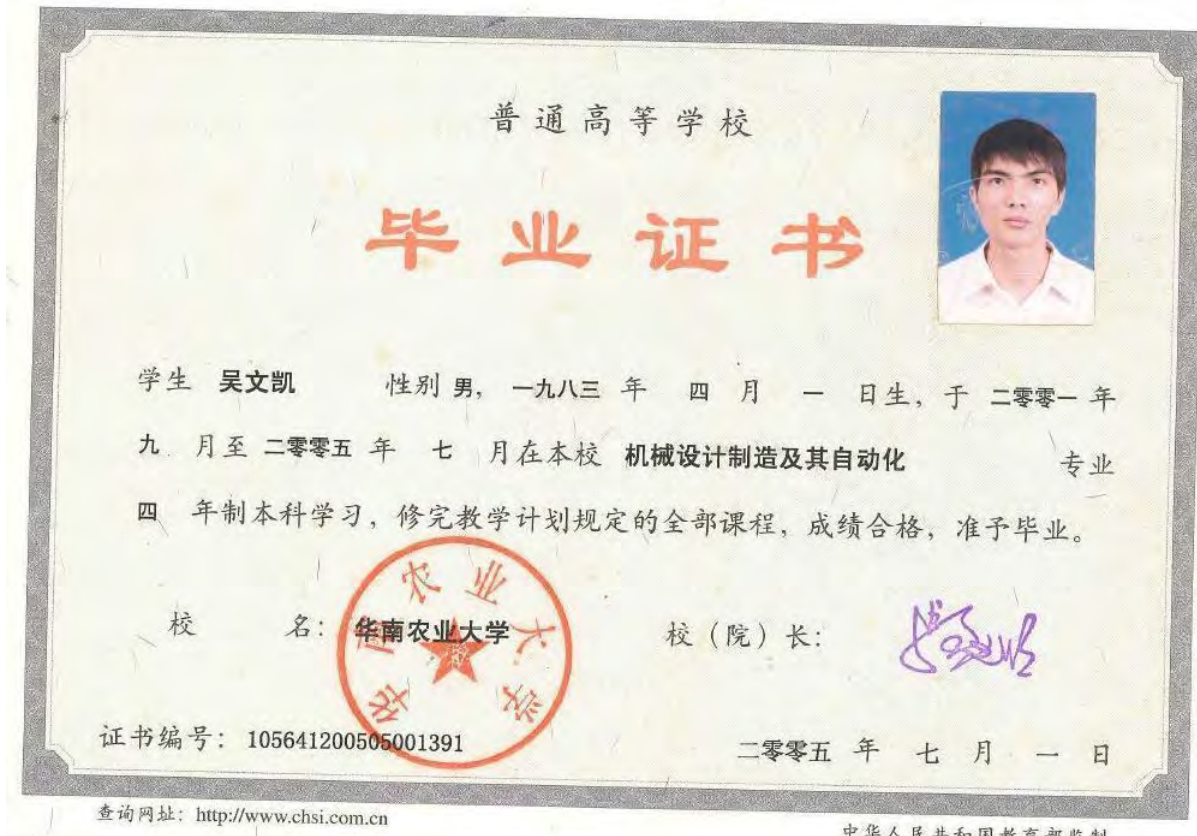 普通高等学校
毕业证书
学生 吴文凯 性别 男, 一九八三 年 四 月 一 日生, 于 二零零一 年
九 月至 二零零五 年 七 月在本校 机械设计制造及其自动化 专业
四 年制本科学习, 修完教学计划规定的全部课程, 成绩合格, 准予毕业。
校 名: 华南农业大学 校(院)长:
华南农业大学
证书编号: 105641200505001391 二零零五 年 七 月 一 日
查询网址: http://www.chsi.com.cn 中华人民共和国教育部监制